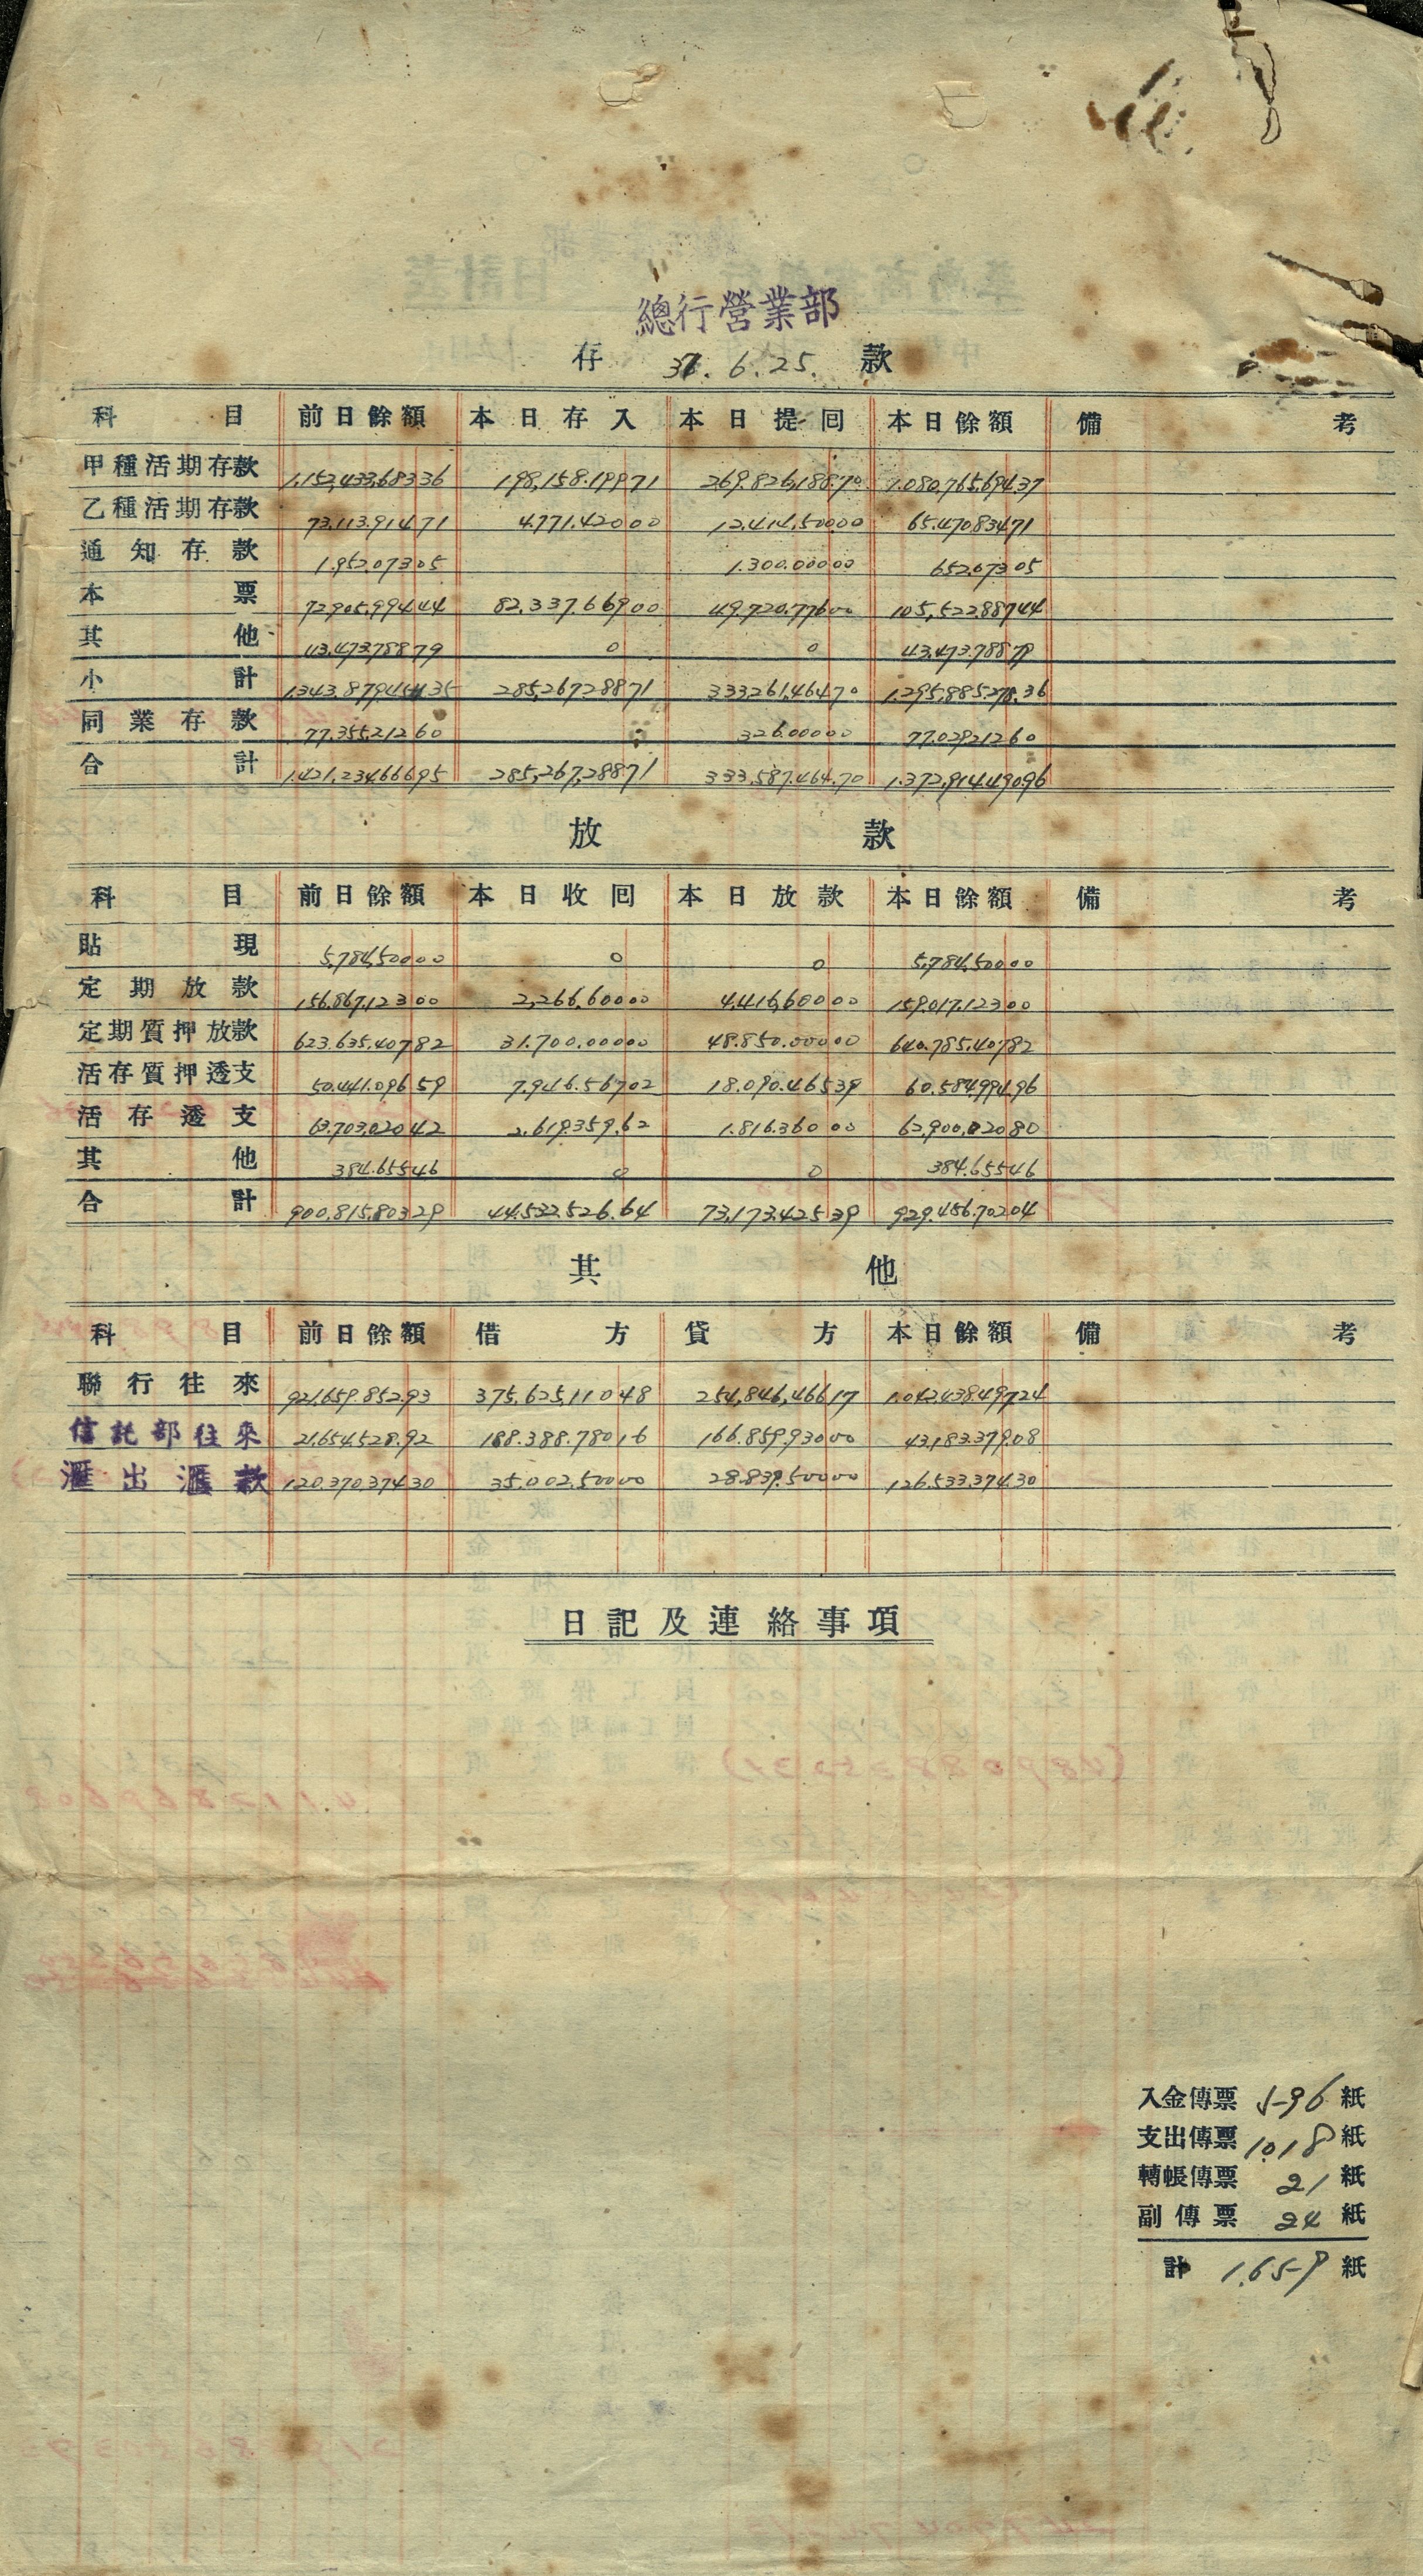 總行營業部
存 37.6.25. 款
科目 前日餘額 本日存入 本日提回 本日餘額 備考
甲種活期存款 1,152,433,683.36 198,158,199.71 269,826,188.70 1,080,765,694.37
乙種活期存款 73,113,914.71 4,771,420.00 12,414,500.00 65,470,834.71
通知存款 1,952,073.05 1,300,000.00 652,073.05
本票 72,905,994.44 82,337,669.00 49,720,776.00 105,522,887.44
其他 43,473,788.79 0 0 43,473,788.79
小計 1,343,879,454.35 285,267,288.71 333,261,464.70 1,295,885,278.36
同業存款 77,355,212.60 326,000.00 77,029,212.60
合計 1,421,234,666.95 285,267,288.71 333,587,464.70 1,372,914,490.96
放款
科目 前日餘額 本日收回 本日放款 本日餘額 備考
貼現 5,784,500.00 0 0 5,784,500.00
定期放款 156,867,123.00 2,266,600.00 4,416,600.00 159,017,123.00
定期質押放款 623,635,407.82 31,700,000.00 48,850,000.00 640,785,407.82
活存質押透支 50,441,096.59 7,946,567.02 18,090,465.39 60,584,994.96
活存透支 63,703,020.42 2,619,359.62 1,816,360.00 62,900,020.80
其他 384,655.46 0 0 384,655.46
合計 900,815,803.29 44,532,526.64 73,173,425.39 929,456,702.04
其他
科目 前日餘額 借方 貸方 本日餘額 備考
聯行往來 921,659,852.93 375,625,110.48 254,846,466.17 1,042,438,497.24
信託部往來 21,654,528.92 188,388,780.16 166,859,930.00 43,183,379.08
滙出滙款 120,370,374.30 35,002,500.00 28,839,500.00 126,533,374.30
日記及連絡事項
入金傳票 596 紙
支出傳票 1,018 紙
轉帳傳票 21 紙
副傳票 24 紙
計 1,659 紙